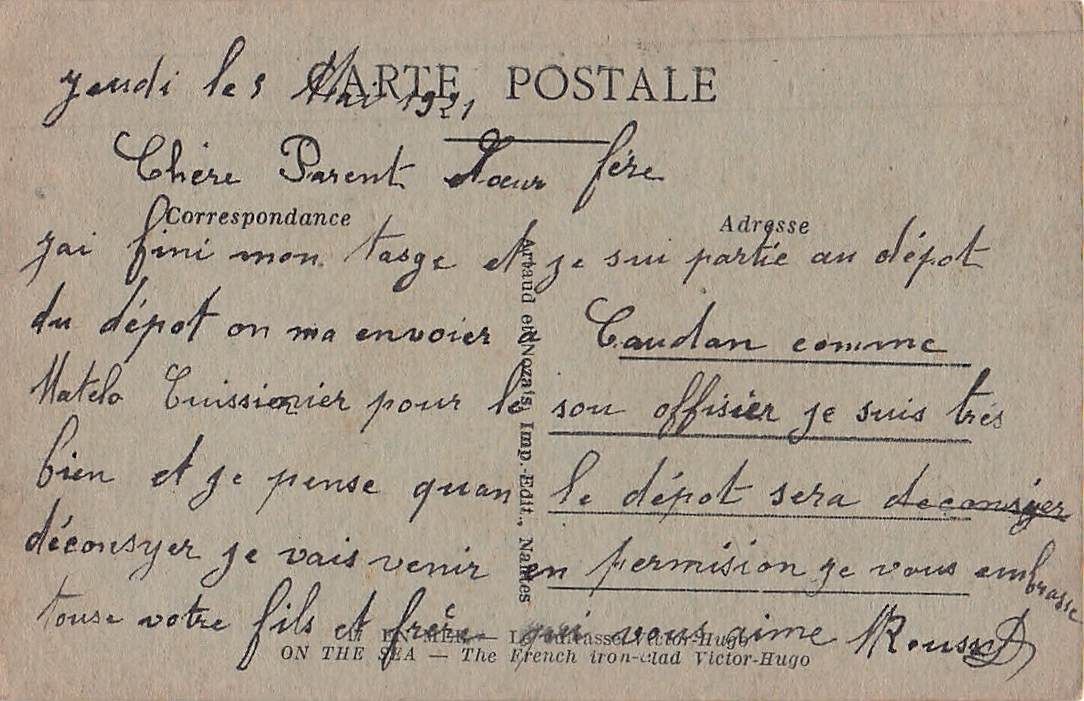 CARTE POSTALE
Jeudi le 5 Mai 1921
Chère Parent Soeur fére
Correspondance
Adresse
jai fini mon tasge et je sui partie au dépot
du dépot on ma envoier a Caudan comme
Matelo Cuissienier pour le sou offisier je suis trés
bien et je pense quan le dépot sera deconsyer
déconsyer je vais venir en permision je vous embrasse
touse votre fils et frére qui vous aime
Artaud et Nozais, Imp.-Edit., Nantes
EN MER — Le cuirassé Victor-Hugo
ON THE SEA — The French iron-clad Victor-Hugo